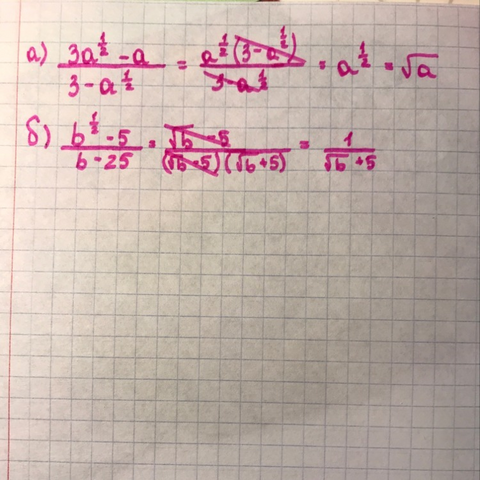 а) (3a^(1/2) - a)/(3 - a^(1/2)) = (a^(1/2)(3 - a^(1/2)))/(3 - a^(1/2)) = a^(1/2) = √a
б) (b^(1/2) - 5)/(b - 25) = (√b - 5)/((√b - 5)(√b + 5)) = 1/(√b + 5)